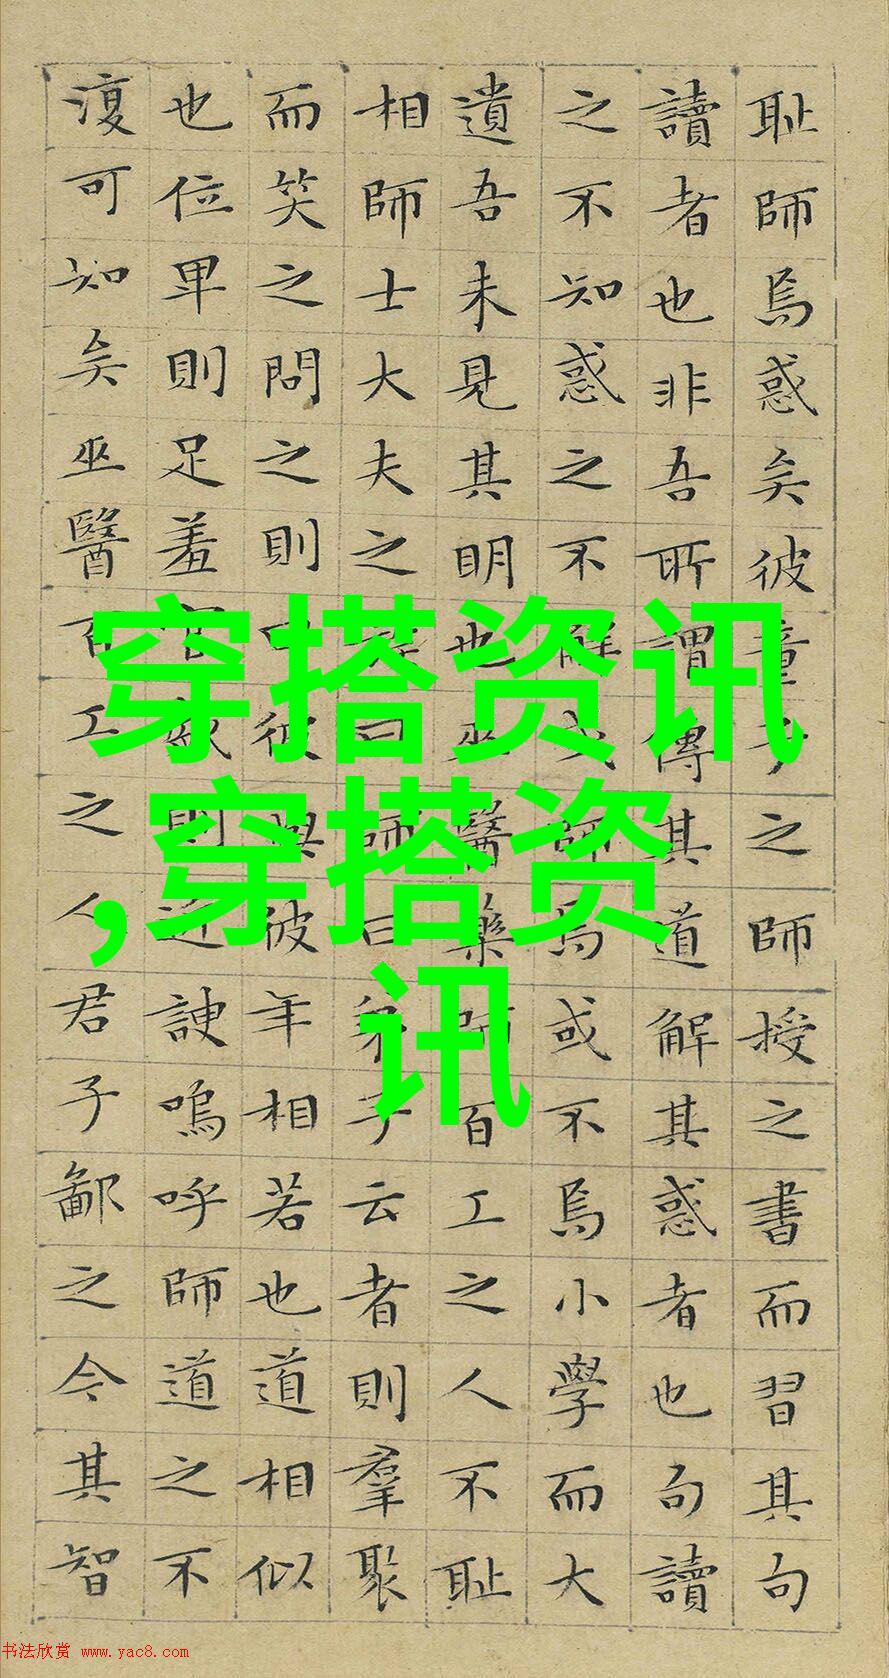 耻師焉惑矣彼童子之師授之書而習其句
讀者也非吾所謂傳其道解其惑者也句讀
之不知惑之不解或師焉或不焉小學而大
遺吾未見其明也巫醫藥師百工之人不耻
相師士大夫之族曰師曰弟子云者則羣聚
而笑之問之則曰彼與彼年相若也道相似
也位卑則足羞官盛則近諛嗚呼師道之不
復可知矣巫醫百工之人君子鄙之今其智
穿搭资讯
,穿搭资
讯
书法欣赏 www.yac8.com